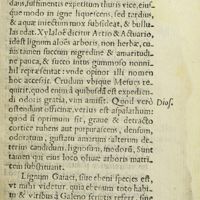 dans, suffimentis expetitum thuris vice, eius-
que modo in igne liquescens, sed tardius,
& aqua iniectum mox subsideat, & bullu-
las edat. Xylaloë dicitur Aetio & Actuario,
id est lignum aloës arboris, non herbæ, cu-
ius tamen succum nigredine & amaritudi-
ne pauca, & succo intus gummoso nonni-
hil repræsentet: unde opinor illi nomen
hoc accersiit. Crudum ubique Mesues re-
quirit, quod enim à quibusdã est expediendi
odoris gratia, vim amisit. Quod verò Dios.
ostendunt officinæ, verius est aspalathum:
quod si optimum sit, graue & detracto
cortice rubens aut purpurascens, densum,
odoratum, gustatu amarum: alterum de-
terius candidum, lignosum, inodorũ, sunt
tamen qui eius loco oliuæ arboris matri-
cem substituant.
Lignum Guaiaci, siue ebeni species est,
vt mihi videtur, quia ebenum toto habi-
tu & viribus à Galeno scriptis refert, siue